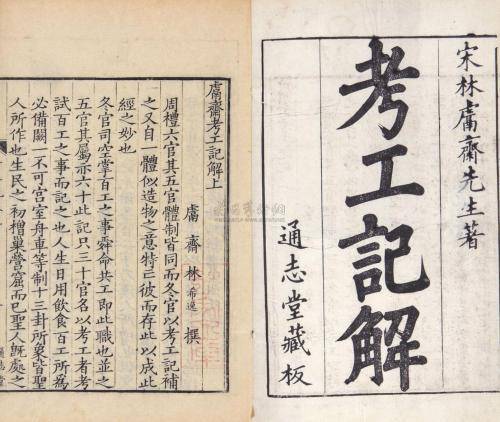 宋林鬳齋先生著
考工記解
通志堂藏板
鬳齋考工記解上
鬳齋林希逸撰
周禮六官其五官體制皆同而冬官以考工記補
之又自一體似造物之意特亡彼而存此以成此
經之妙也
冬官司空掌百工之事舜命共工即此職也並之
五官其屬亦六十此記只三十官名以考工者考
試百工之事而記之也人生日用飲食百工所為
必備闕一不可宮室舟車等制十三卦所象皆聖
人所作也生民之初橧巢營窟而已聖人旣處之